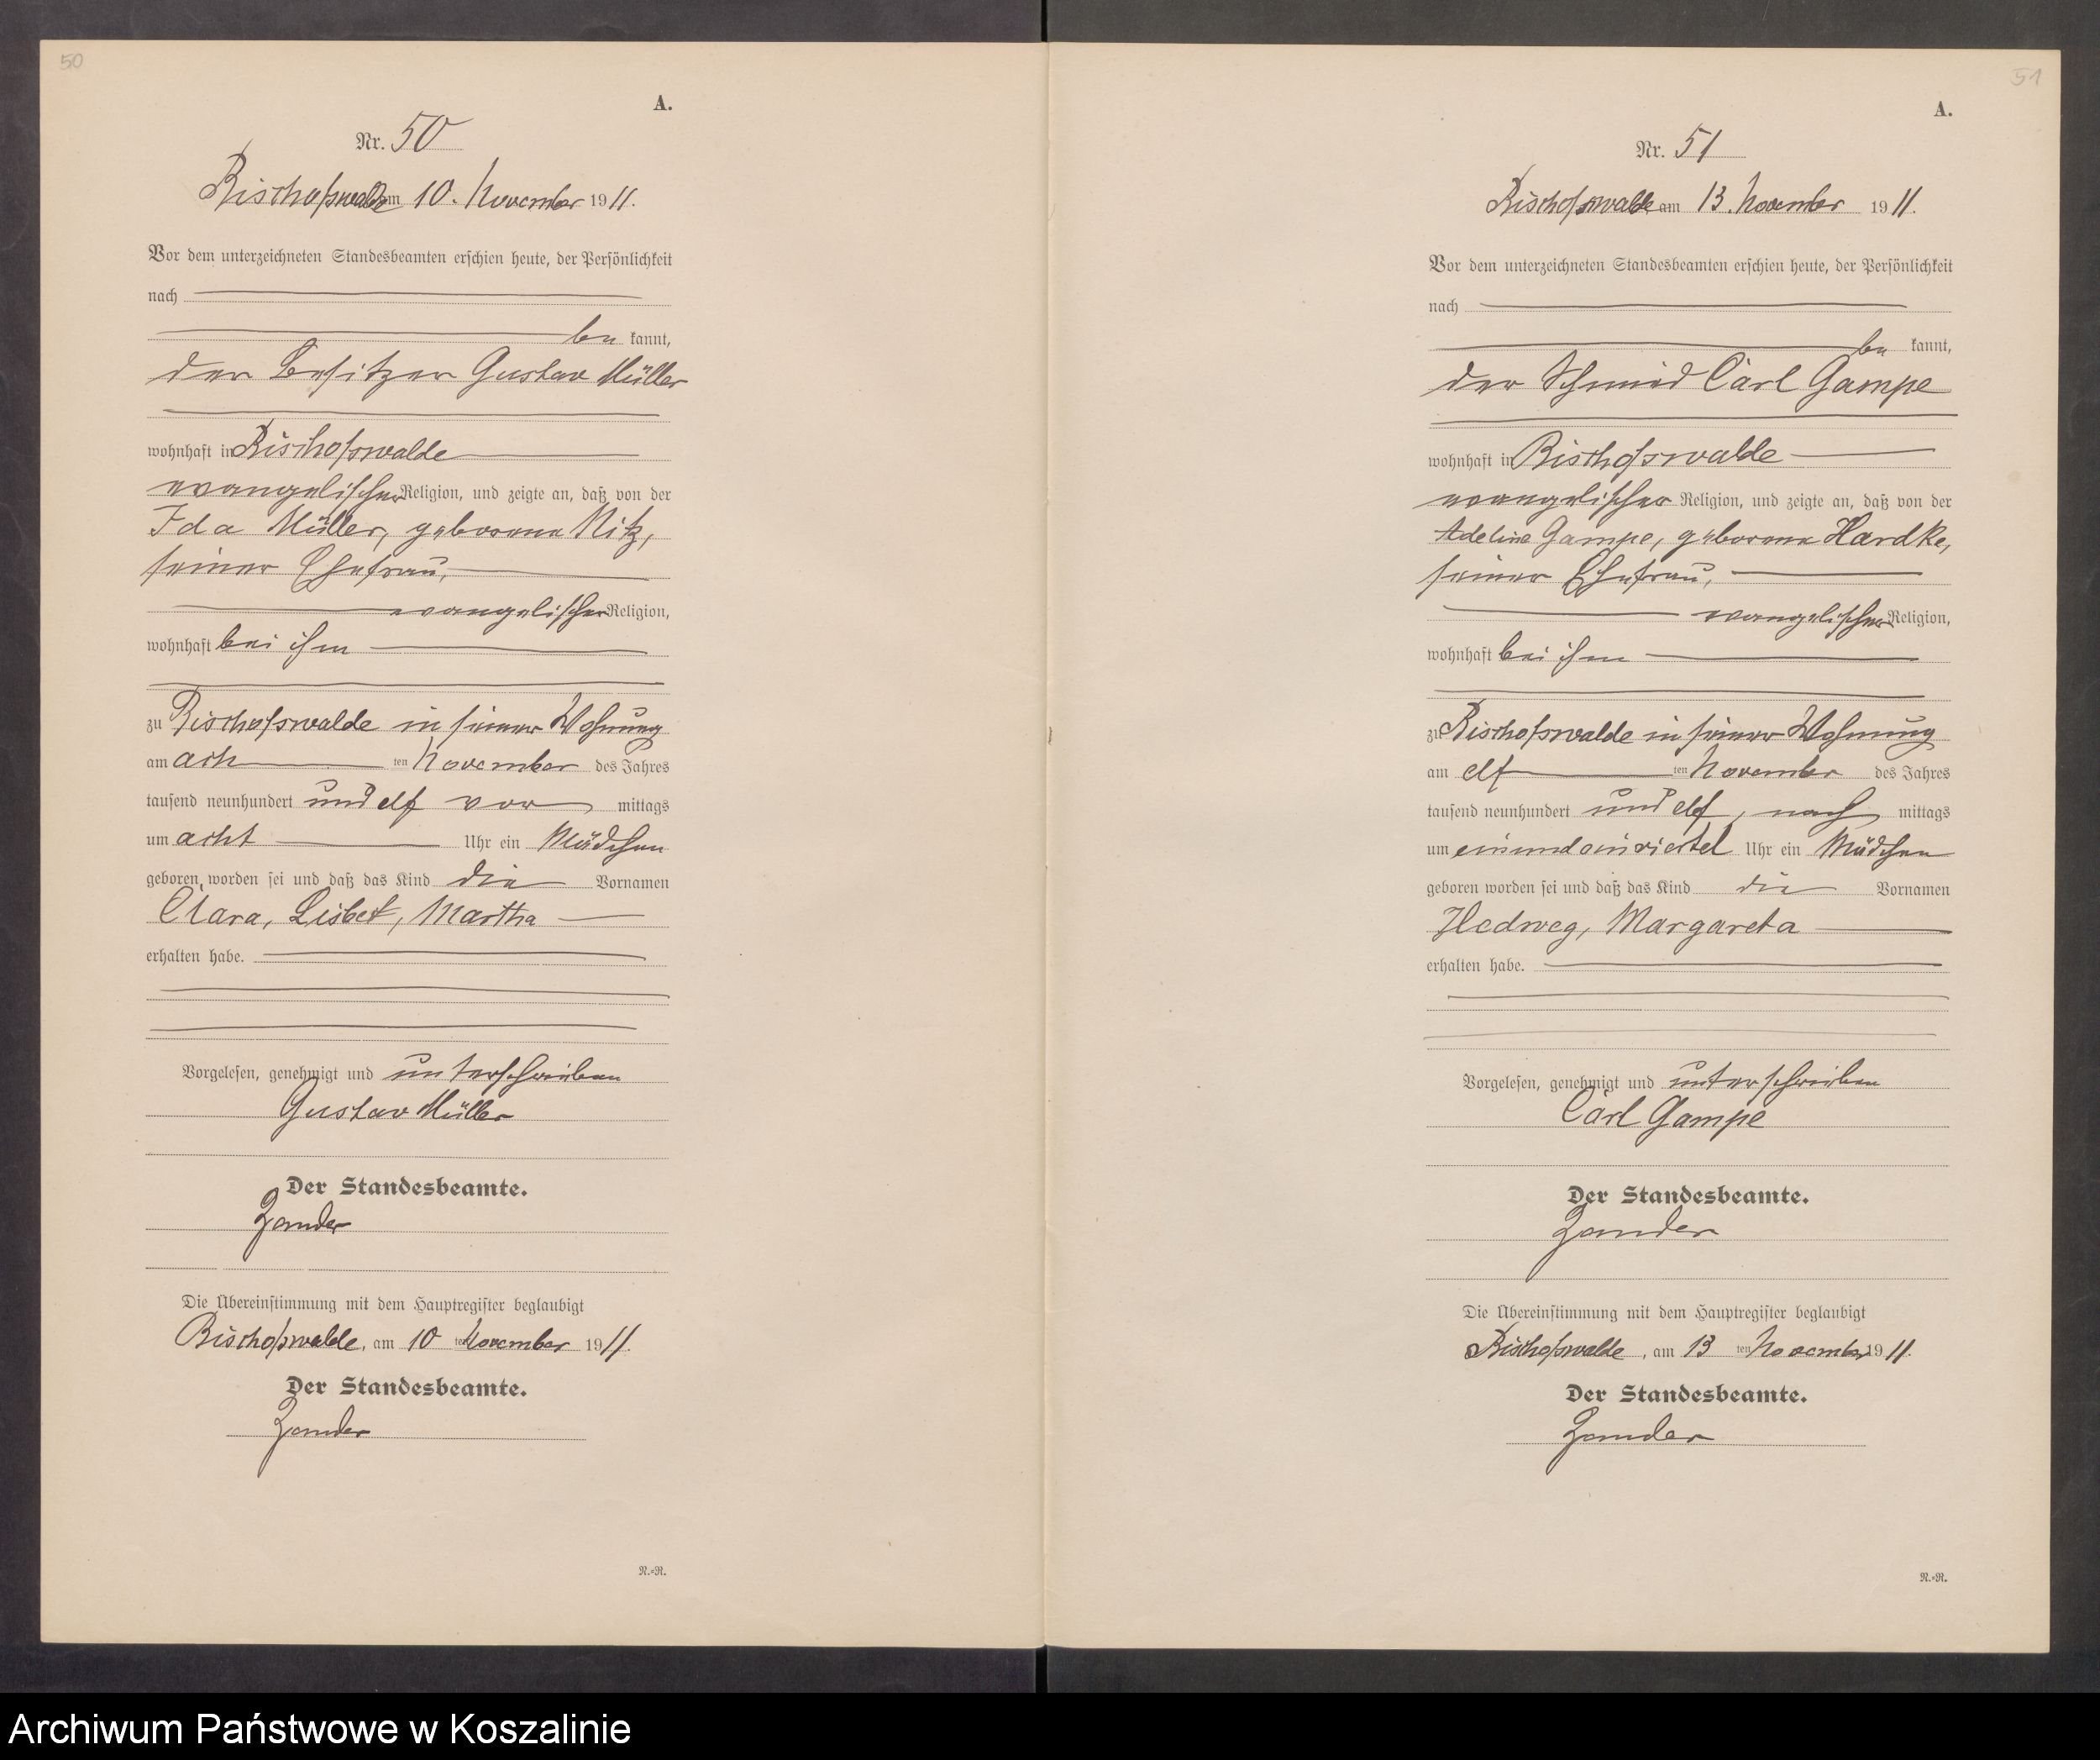 50
A.
Nr. 50
Bischofswalde am 10. November 1911.
Vor dem unterzeichneten Standesbeamten erschien heute, der Persönlichkeit
nach
be kannt,
der Besitzer Gustav Müller
wohnhaft in Bischofswalde
evangelischer Religion, und zeigte an, daß von der
Ida Müller, geborene Nitz,
seiner Ehefrau,
evangelischer Religion,
wohnhaft bei ihm
zu Bischofswalde in seiner Wohnung
am ach ten November des Jahres
tausend neunhundert und elf vor mittags
um acht Uhr ein Mädchen
geboren worden sei und daß das Kind die Vornamen
Clara, Lisbet, Martha
erhalten habe.
Vorgelesen, genehmigt und unterschrieben
Gustav Müller
Der Standesbeamte.
Zander
Die Übereinstimmung mit dem Hauptregister beglaubigt
Bischofswalde, am 10 ten November 1911.
Der Standesbeamte.
Zander
N.=R.
51
A.
Nr. 51
Bischofswalde am 13. November 1911.
Vor dem unterzeichneten Standesbeamten erschien heute, der Persönlichkeit
nach
be kannt,
der Schmied Carl Gampe
wohnhaft in Bischofswalde
evangelischer Religion, und zeigte an, daß von der
Adeline Gampe, geborene Hardke,
seiner Ehefrau,
evangelischer Religion,
wohnhaft bei ihm
zu Bischofswalde in seiner Wohnung
am elf ten November des Jahres
tausend neunhundert und elf, nach mittags
um einundeinviertel Uhr ein Mädchen
geboren worden sei und daß das Kind die Vornamen
Hedweg, Margareta
erhalten habe.
Vorgelesen, genehmigt und unterschrieben
Carl Gampe
Der Standesbeamte.
Zander
Die Übereinstimmung mit dem Hauptregister beglaubigt
Bischofswalde, am 13 ten November 1911.
Der Standesbeamte.
Zander
N.=R.
Archiwum Państwowe w Koszalinie